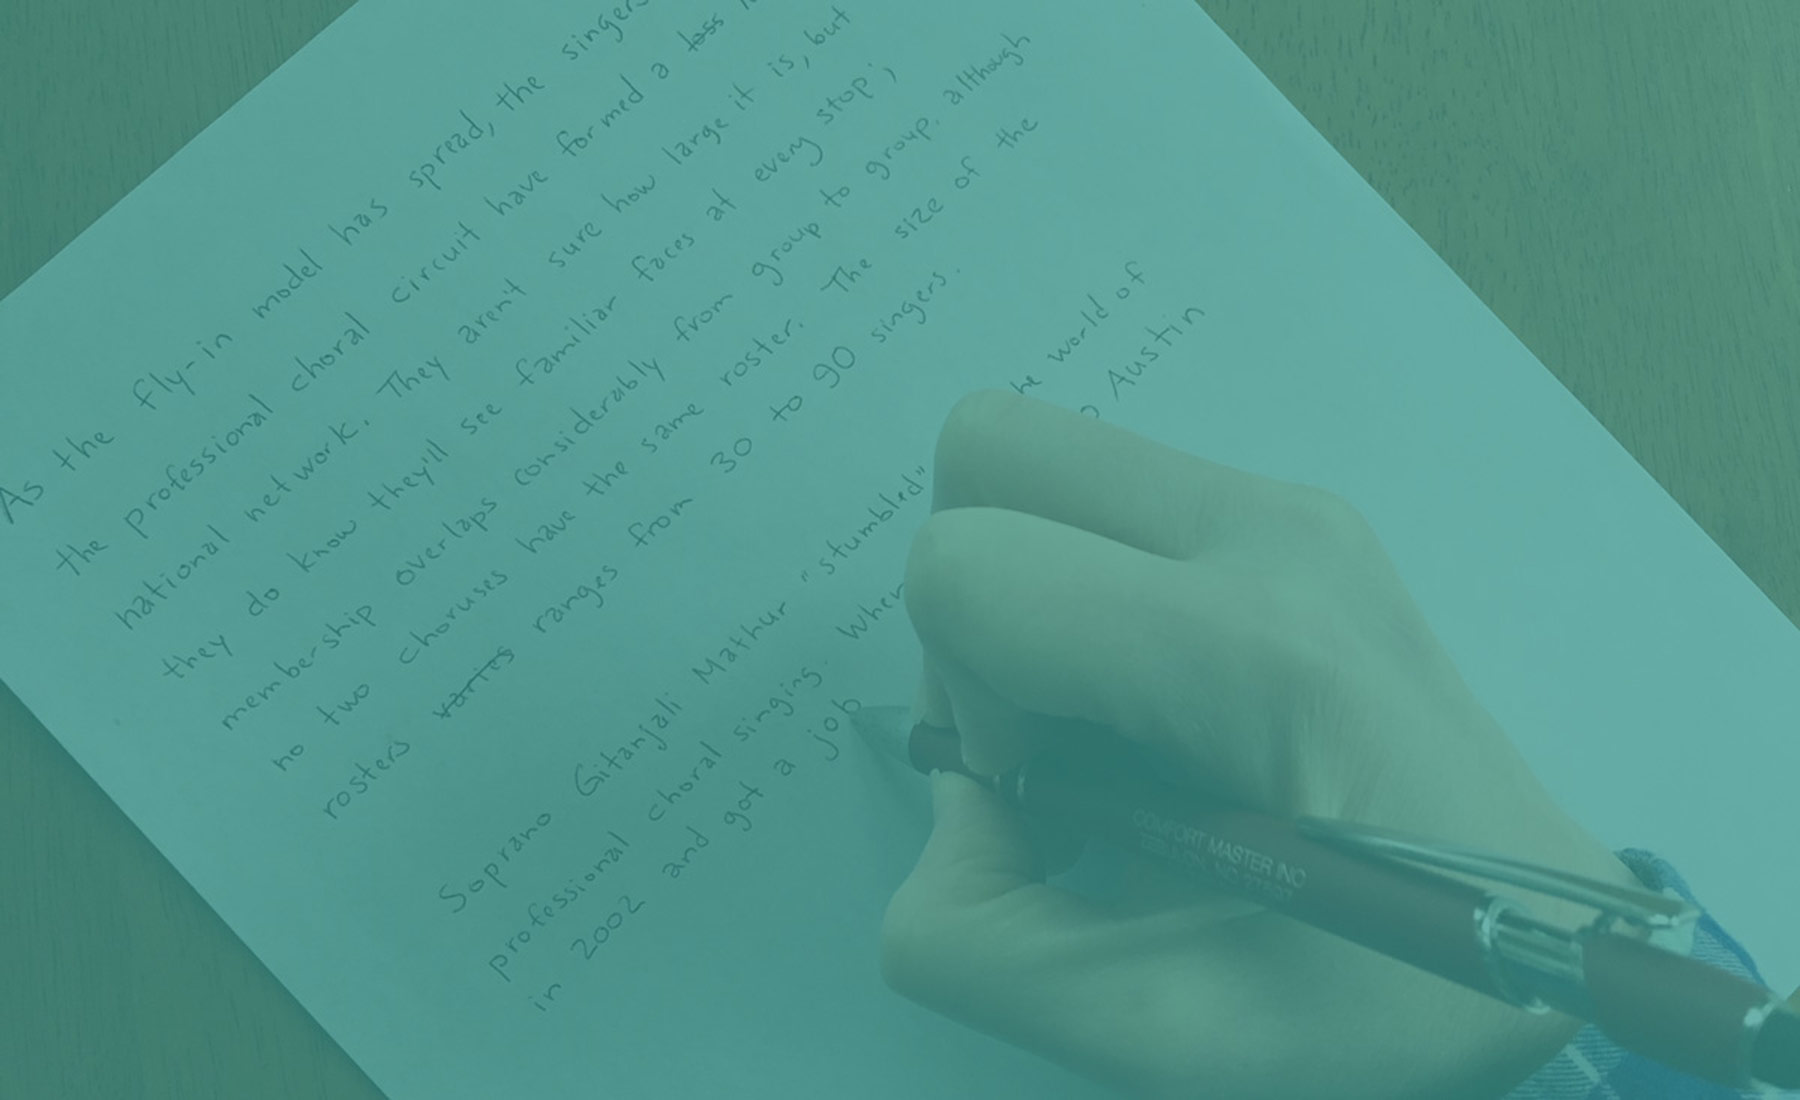 As the fly-in model has spread, the singers
the professional choral circuit have formed a loss
national network. They aren't sure how large it is, but
they do know they'll see familiar faces at every stop;
membership overlaps considerably from group to group, although
no two choruses have the same roster. The size of the
rosters varies ranges from 30 to 90 singers.
Soprano Gitanjali Mathur "stumbled" he world of
professional choral singing. When o Austin
in 2002 and got a job
COMFORT MASTER INC